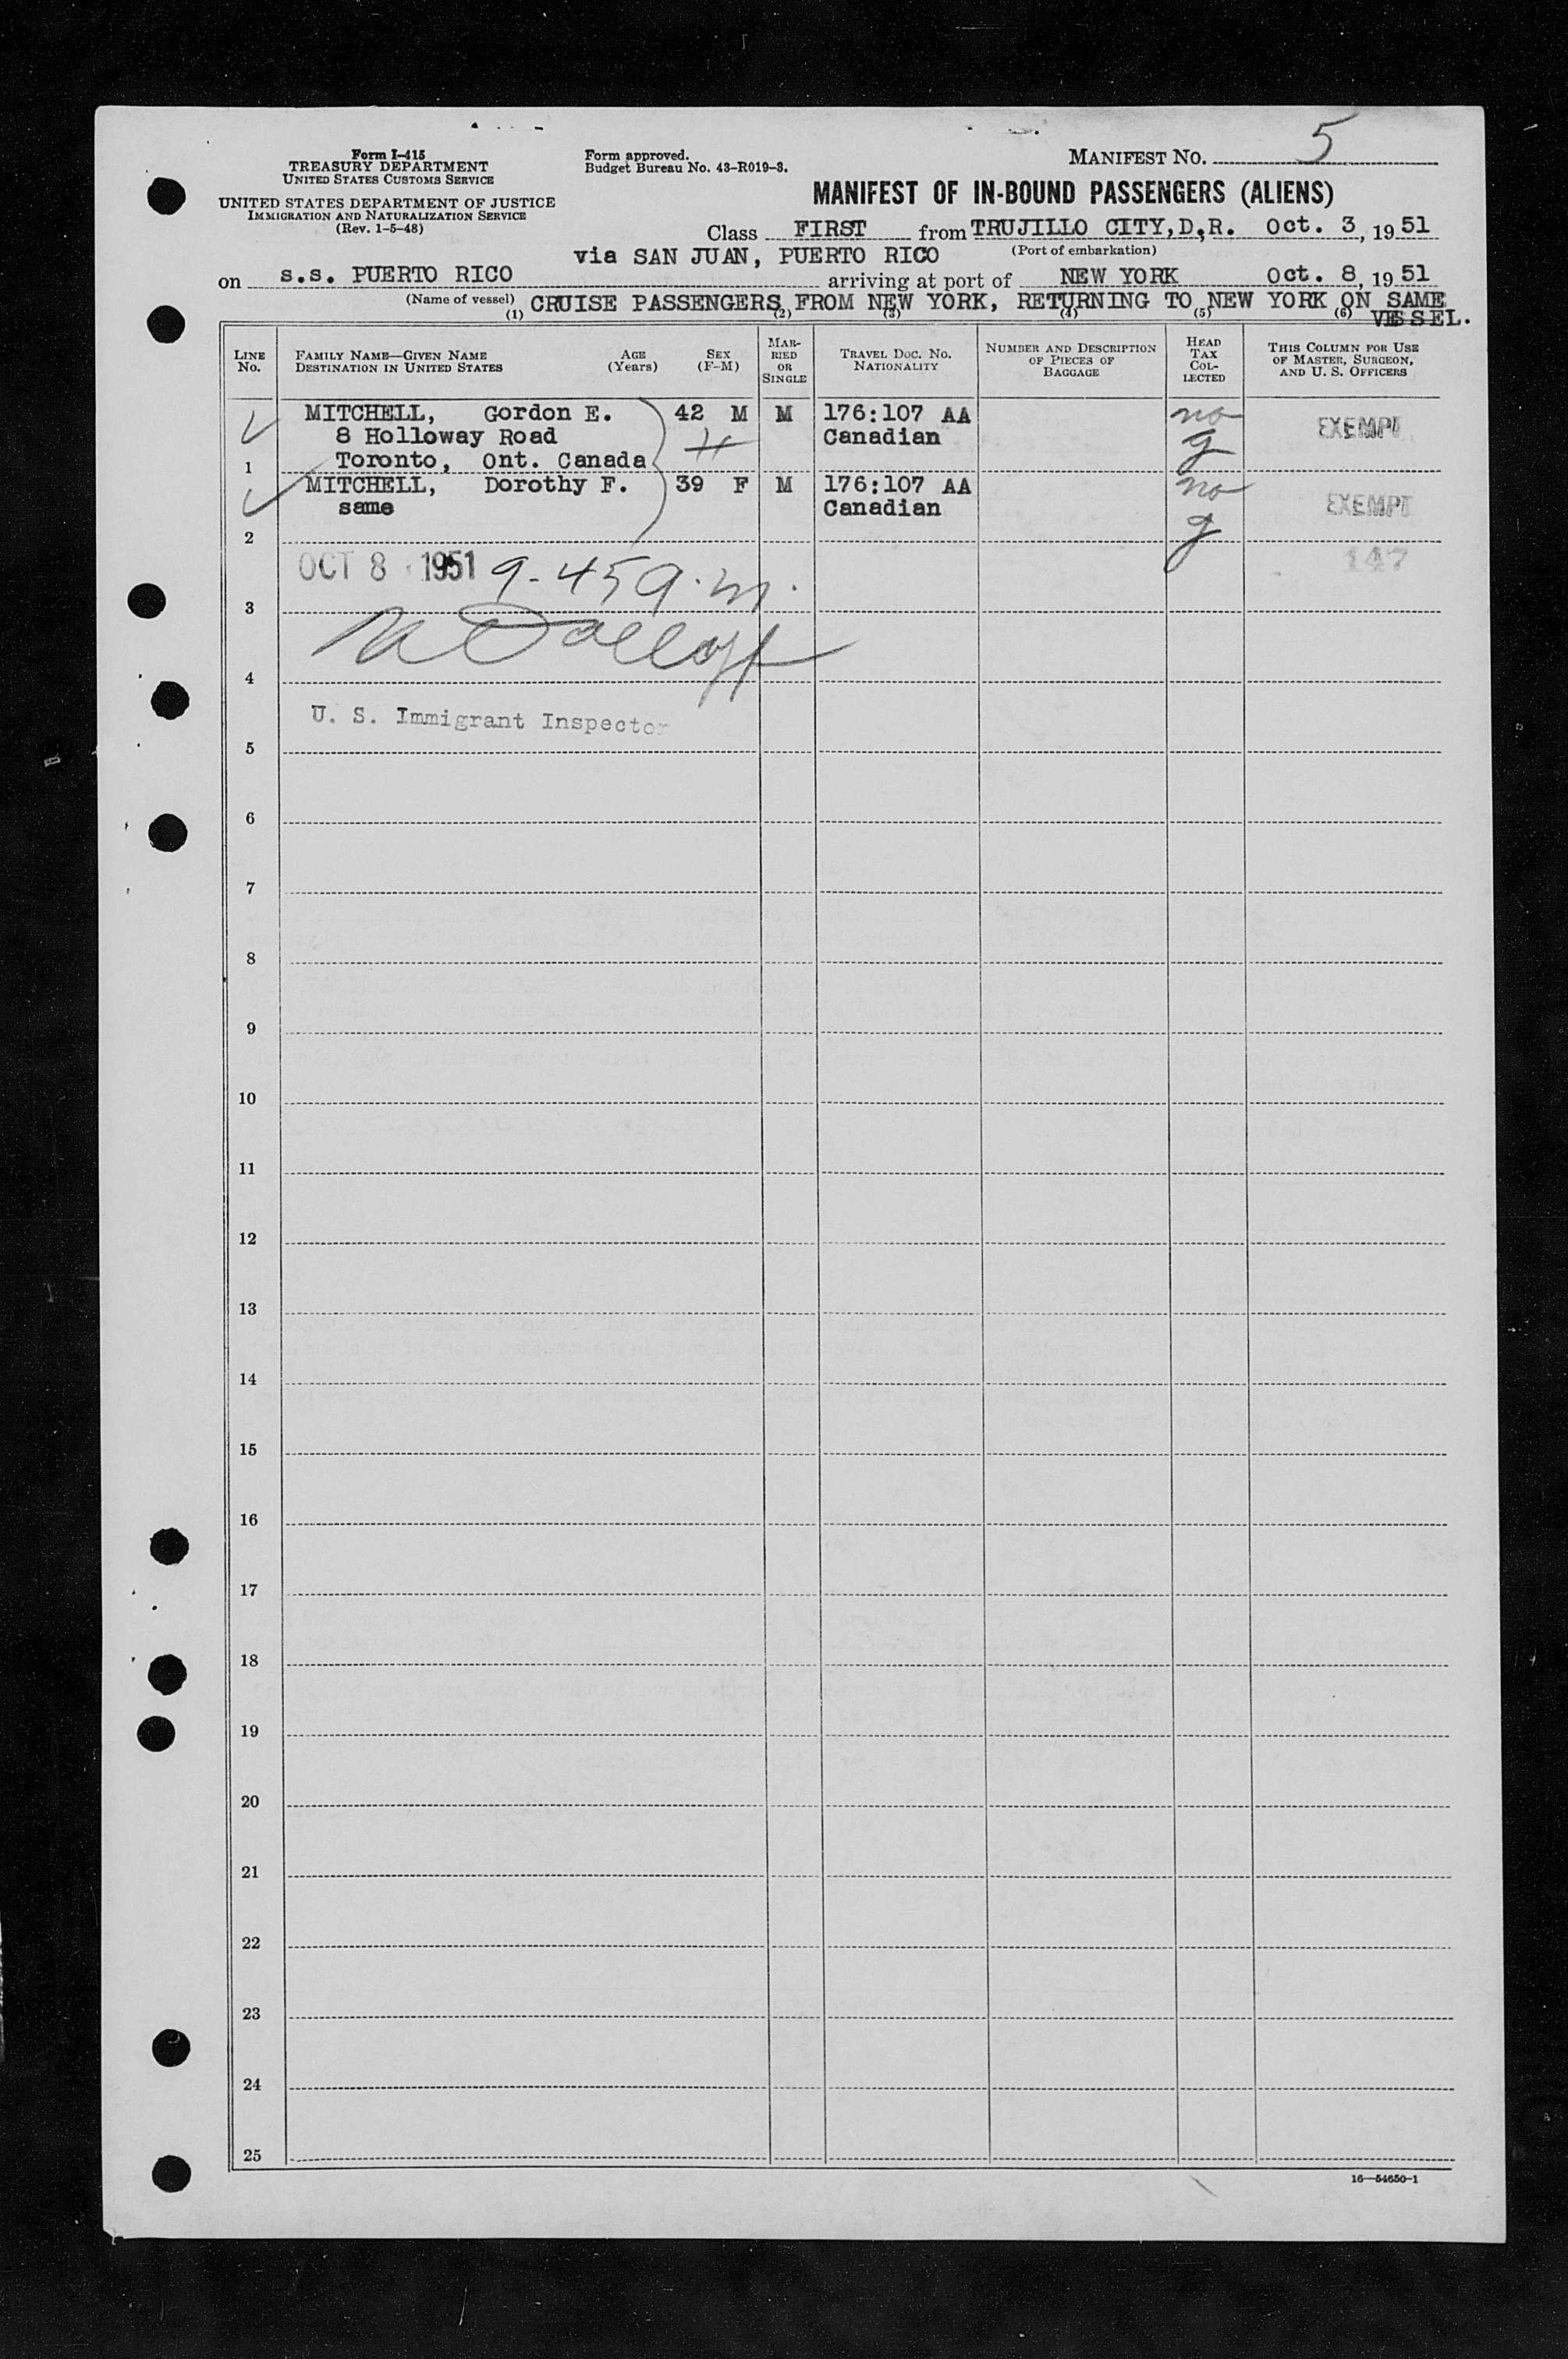 Form I-415
TREASURY DEPARTMENT
UNITED STATES CUSTOMS SERVICE
UNITED STATES DEPARTMENT OF JUSTICE
IMMIGRATION AND NATURALIZATION SERVICE
(Rev. 1-5-48)
Form approved.
Budget Bureau No. 43-R019-3.
MANIFEST NO. 5
MANIFEST OF IN-BOUND PASSENGERS (ALIENS)
Class FIRST from TRUJILLO CITY, D.R. Oct. 3, 1951
via SAN JUAN, PUERTO RICO (Port of embarkation)
on s.s. PUERTO RICO arriving at port of NEW YORK Oct. 8, 1951
(Name of vessel) CRUISE PASSENGERS FROM NEW YORK, RETURNING TO NEW YORK ON SAME
VESSEL.
(1) (2) (3) (4) (5) (6)
LINE No.
FAMILY NAME—GIVEN NAME
DESTINATION IN UNITED STATES
AGE (Years)
SEX (F-M)
MARRIED OR SINGLE
TRAVEL DOC. NO.
NATIONALITY
NUMBER AND DESCRIPTION OF PIECES OF BAGGAGE
HEAD TAX COLLECTED
THIS COLUMN FOR USE OF MASTER, SURGEON, AND U. S. OFFICERS
MITCHELL, Gordon E. 42 M M 176:107 AA no EXEMPT
8 Holloway Road Canadian
1 Toronto, Ont. Canada
MITCHELL, Dorothy F. 39 F M 176:107 AA no EXEMPT
same Canadian
2
OCT 8 1951 9-45 a.m. 147
3
4
U. S. Immigrant Inspector
5
6
7
8
9
10
11
12
13
14
15
16
17
18
19
20
21
22
23
24
25
16—54650-1